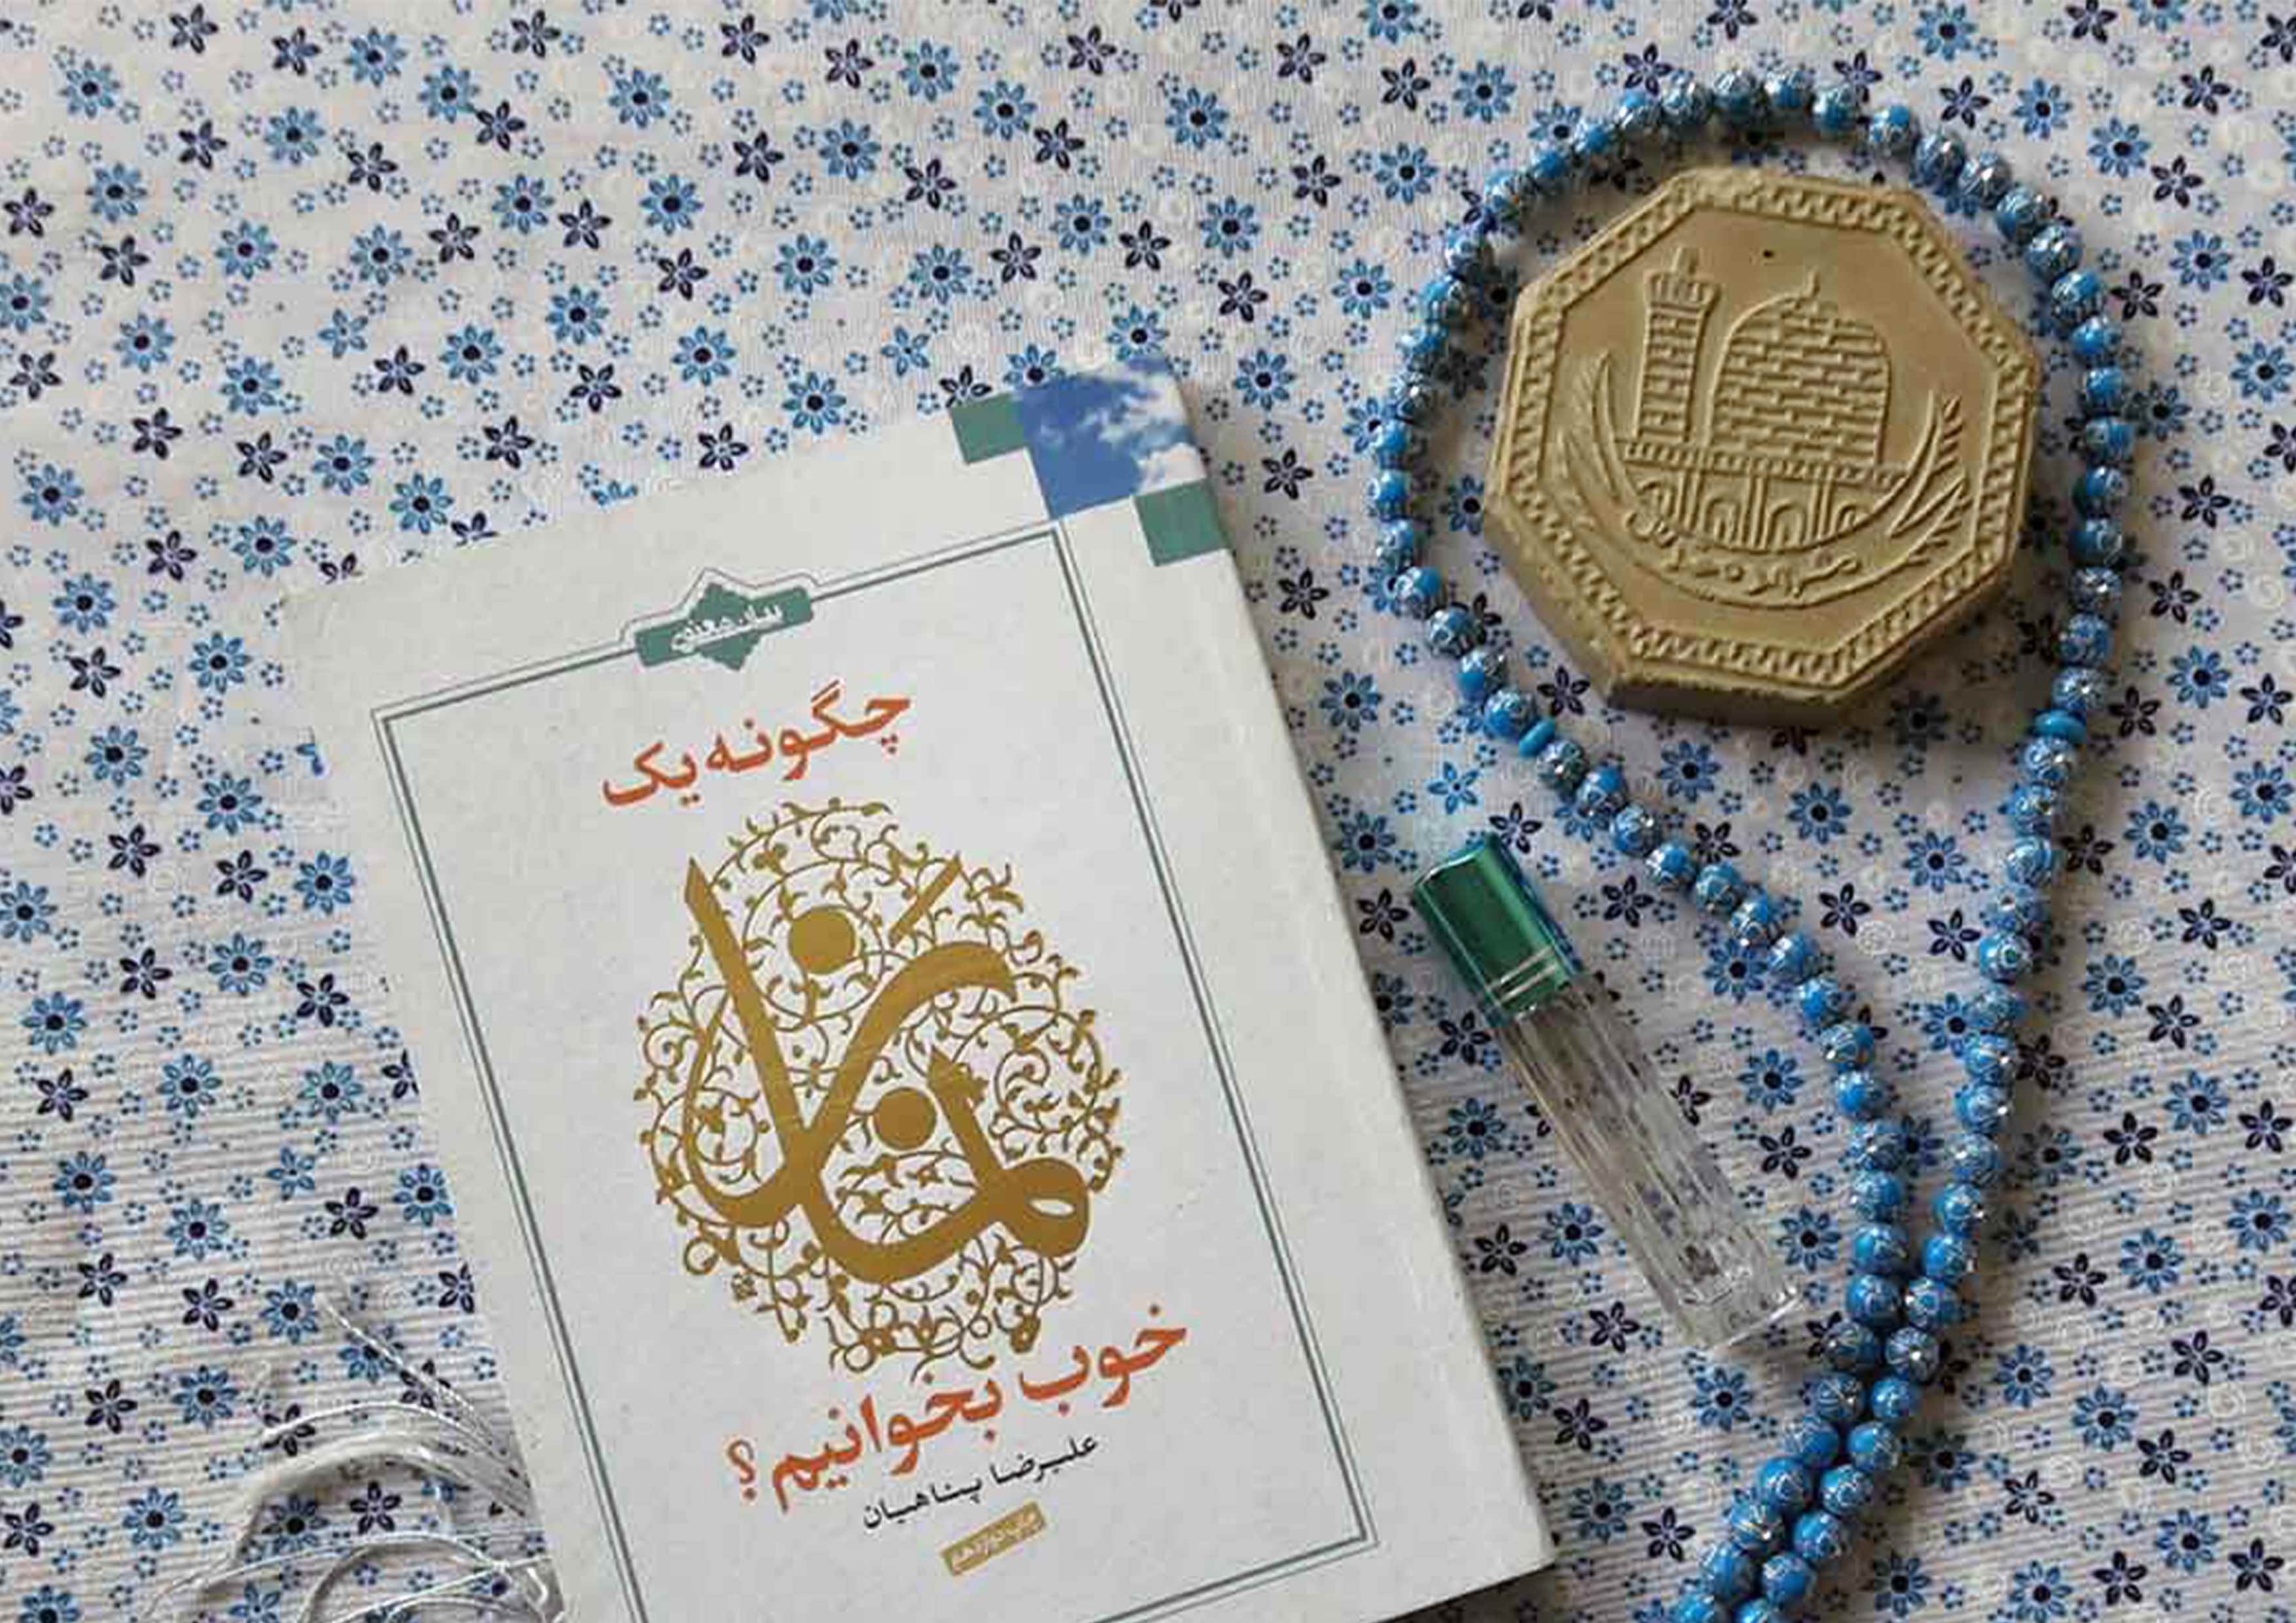 بیان معنوی
چگونه یک
نماز
خوب بخوانیم؟
علیرضا پناهیان